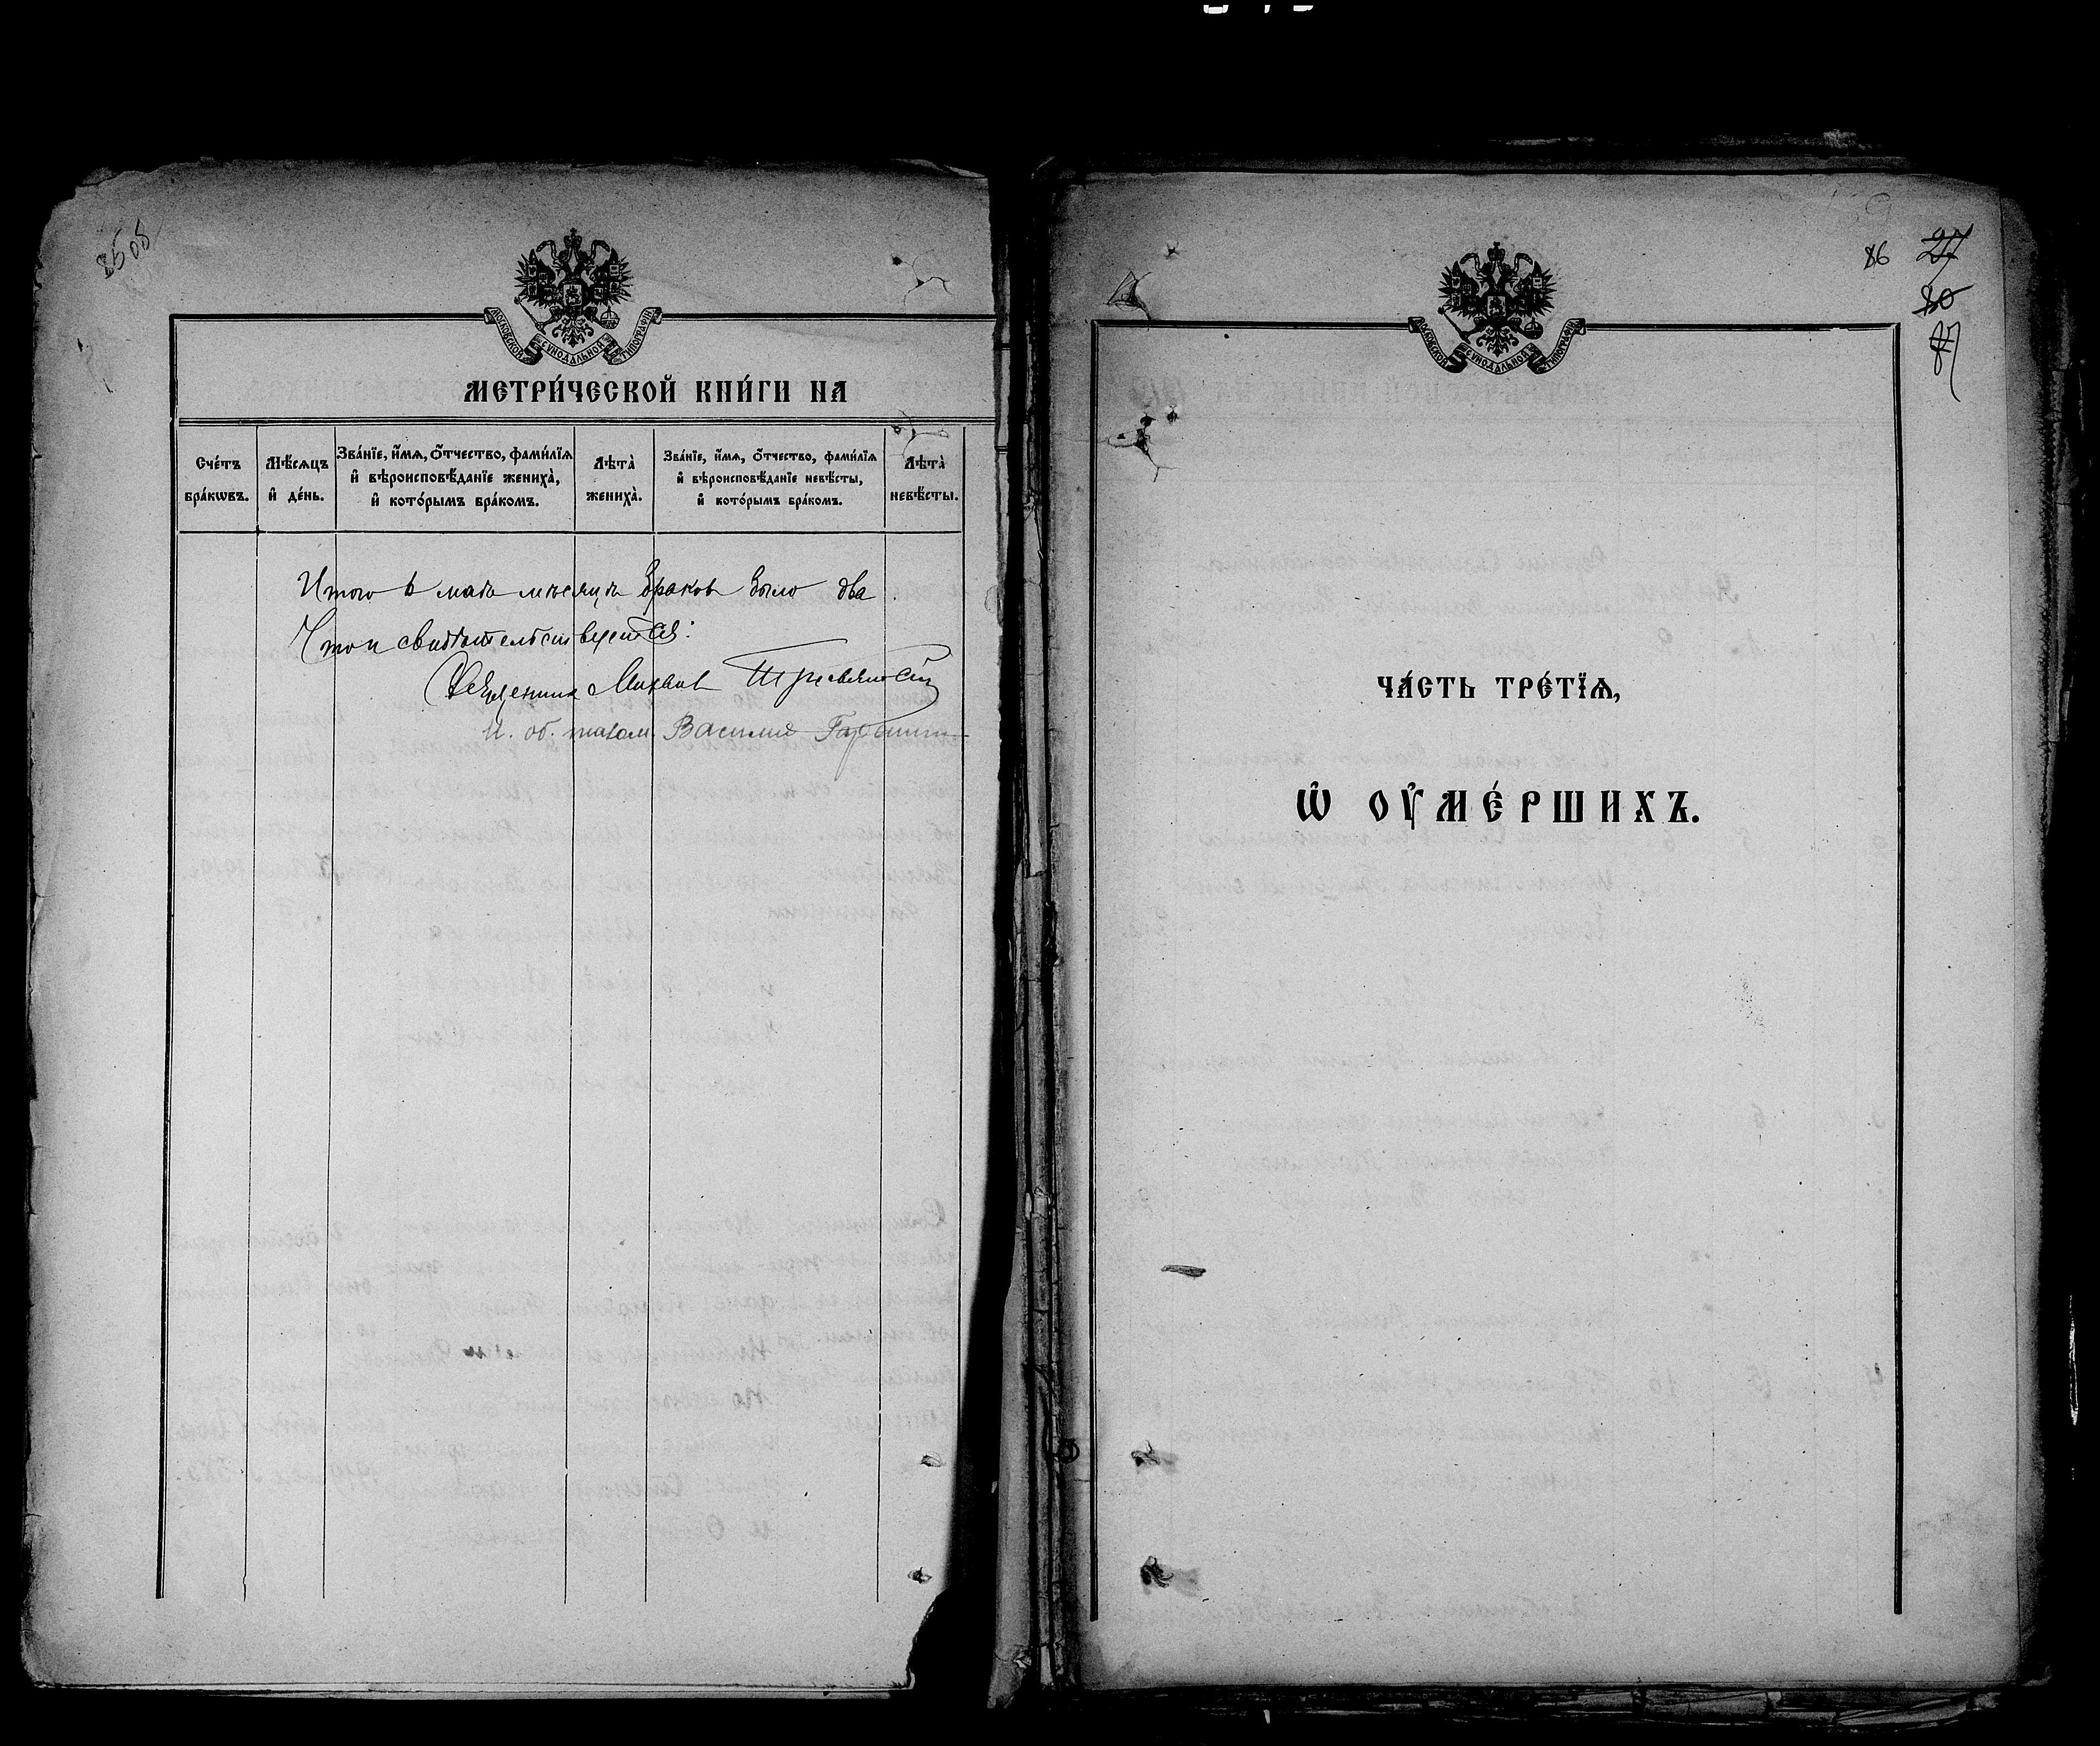 85об
МОСКОВСКОЙ СѴНОДАЛЬНОЙ ТИПОГРАФІИ
МЕТРИ́ЧЕСКОЙ КНИ́ГИ НА
Сче́тъ бра́кѡвъ.
Мѣ́сѧцъ и҆ де́нь.
Зва́нїе, и҆́мѧ, ѻ҆́тчество, фами́лїѧ и҆ вѣроисповѣ́данїе жениха̀, и҆ кото́рымъ бра́комъ.
Лѣта̀ жениха̀.
Зва́нїе, и҆́мѧ, ѻ҆́тчество, фами́лїѧ и҆ вѣроисповѣ́данїе невѣ́сты, и҆ кото́рымъ бра́комъ.
Лѣта̀ невѣ́сты.
Итого в мае месяце браков было два
Что и свидетельствуется:
Священник Михаил
И. об. псалом. Василий
86 27
80
87
МОСКОВСКОЙ СѴНОДАЛЬНОЙ ТИПОГРАФІИ
ЧА́СТЬ ТРЕ́ТЇѦ,
Ѡ҆ ОУ҆МЕ́РШИХЪ.